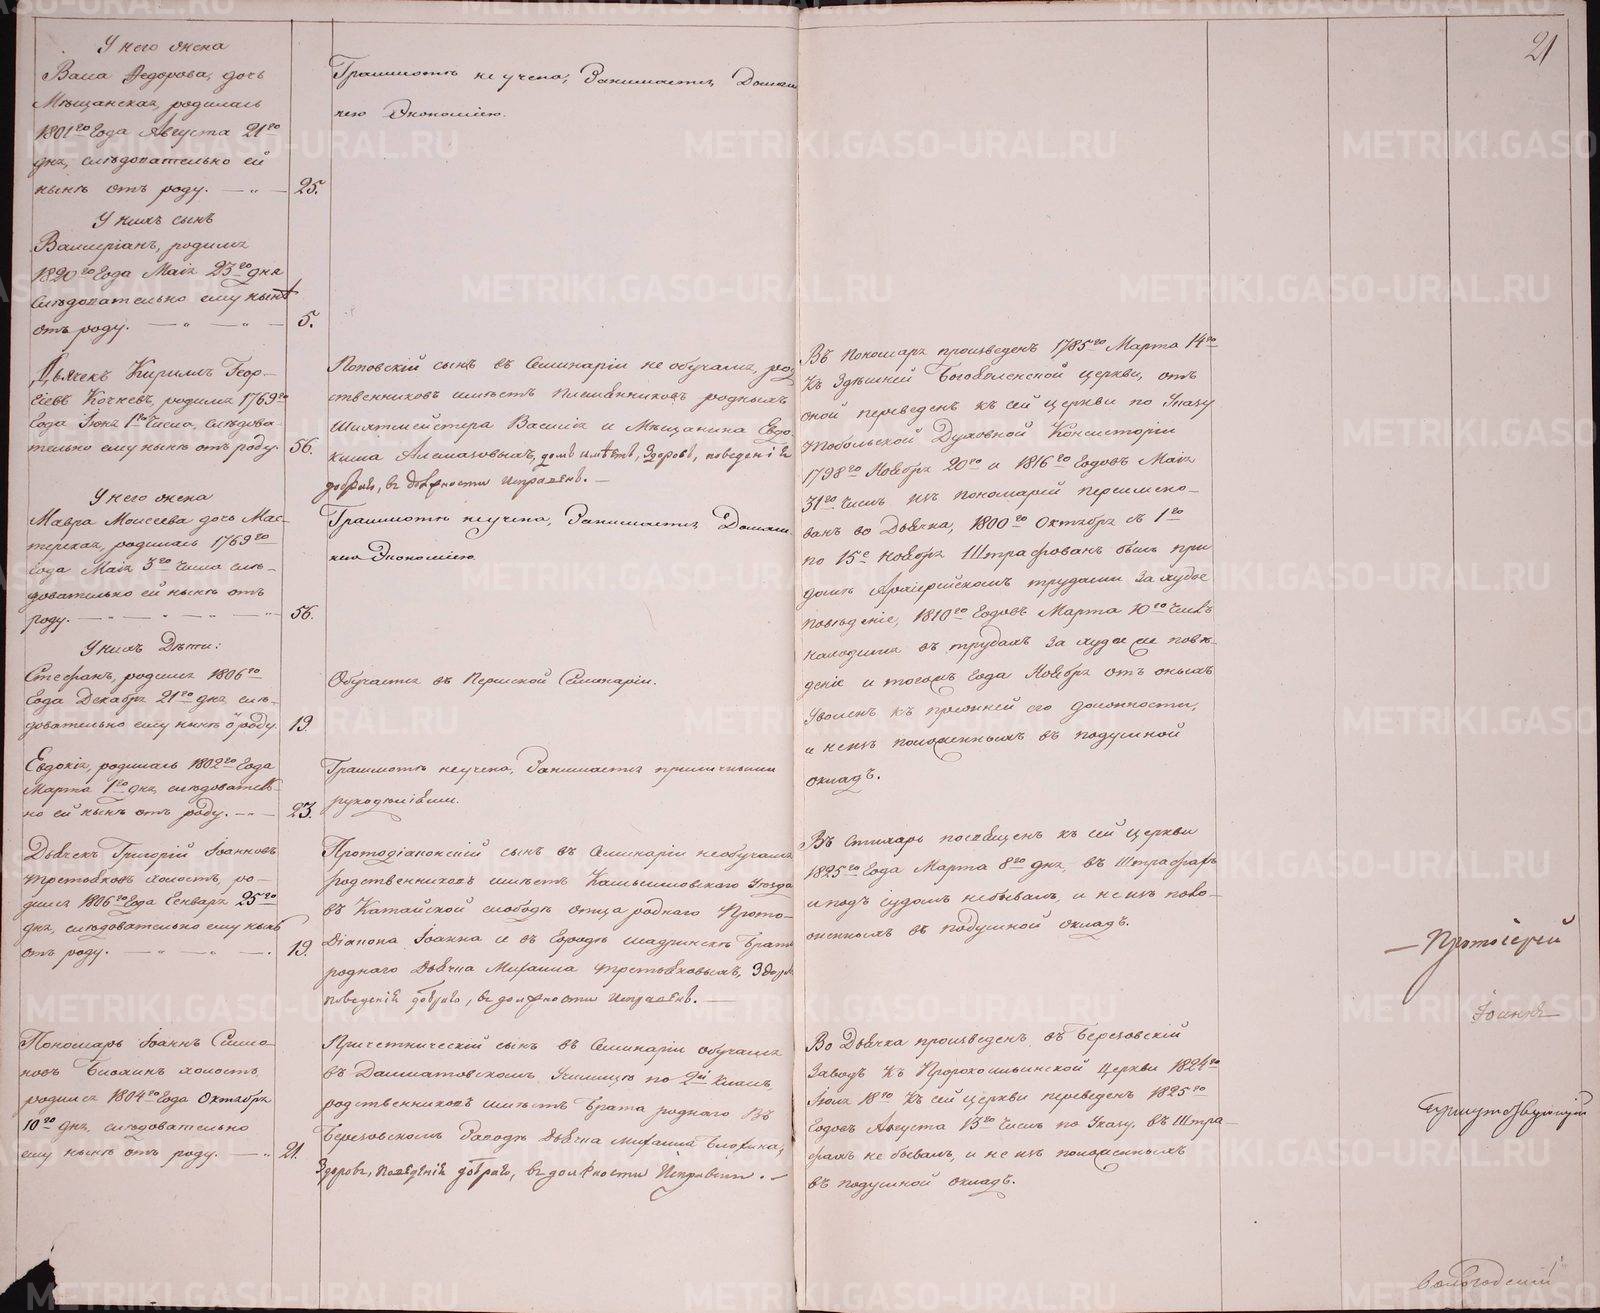 21
У него жена
Васа Федорова, дочь
Мѣщанская, родилась
1801го Года Августа 21го
дня, слѣдовательно ей
нынѣ отъ роду. — „ — 25.
Грамотѣ не учена, Занимается Домаш
нею Экономіею.
У нихъ сынъ
Валеріанъ, родился
1820го Года Маія 23го дня
слѣдовательно ему нынѣ
отъ роду. — „ — „ — 5.
Дьячекъ Кириллъ Геор-
гіевъ Кочневъ, родился 1769го
Года Іюня 1го Числа, слѣдова-
тельно ему нынѣ отъ роду. 56.
Поповскій сынъ въ Семинаріи не обучался, род
ственниковъ имѣетъ Племянниковъ родныхъ
Шихтмейстера Василія и Мѣщанина Евдо
кима домъ имѣетъ, Здоровъ, поведенія
добраго, въ должности Исправенъ. —
Въ Пономаря произведенъ 1785го Марта 14го
Къ Здѣшней Богоявленской церкви, отъ
оной переведенъ къ сей церкви по Указу
Тобольской Духовной Консисторіи
1798го Ноября 20го и 1816го Годовъ Маія
31го Числъ изъ Пономарей переимено-
ванъ во Дьячка, 1800го Октября съ 1го
по 15е Ноября Штрафованъ былъ при
домѣ Архіерейскомъ трудами За худое
поведеніе, 1810го Годовъ Марта 10го Числъ
находился въ трудахъ За худое же пове-
деніе и тогожъ Года Ноября отъ оныхъ
Уволенъ къ прежней его должности,
и неизъ положенныхъ въ подушной
окладъ.
У него жена
Мавра Моисеева дочь Мас-
терская, родилась 1769го
Года Маія 3го Числа слѣ-
довательно ей нынѣ отъ
роду. — „ — „ — „ — 56.
Грамотѣ не учена, Занимается Домаш
нею Экономіею.
У нихъ Дѣти:
Стефанъ, родился 1806го
Года Декабря 21го дня слѣ-
довательно ему нынѣ о роду. 19.
Обучается въ Пермской Семинаріи.
Евдокія, родилась 1802го Года
Марта 1го дня, слѣдователь-
но ей нынѣ отъ роду. — „ — 23.
Грамотѣ неучена, Занимается приличными
рукодѣліями.
Дьячекъ Григорій Іоанновъ
Третьяковъ холостъ, ро-
дился 1806го Года Генваря 25го
дня, слѣдовательно ему нынѣ
отъ роду. — „ — „ — . 19.
Протодіаконскій сынъ въ Семинаріи необучался
родственниковъ имѣетъ Камышловскаго Уѣзда
въ Катайской слободѣ отца роднаго Прото-
Діакона Іоанна и въ Городѣ Шадринскѣ Брата
роднаго Дьячка Михаила Третьяковыхъ, Здоровъ
поведенія добраго, въ должности Исправенъ. —
Въ Стихарь посвященъ къ сей церкви
1825го Года Марта 8го дня, въ Штрафахъ
и подъ судомъ небывалъ, и неизъ поло-
женныхъ въ подушной окладъ.
Пономарь Іоаннъ Симо-
новъ холостъ,
родился 1804го Года Октября
10го дня, слѣдовательно
ему нынѣ отъ роду. — „ 21.
Причетническій сынъ въ Семинаріи обучался
въ Далматовскомъ Училищѣ по 2й Классъ,
родственниковъ имѣетъ Брата роднаго Въ
Березовскомъ Заводѣ Дьячка Михаила
Здоровъ, Поведенія добраго, въ должности Исправенъ. —
Во Дьячка произведенъ въ Березовскій
Заводъ Къ Пророкоильинской Церкви 1824го
Іюля 18го Къ сей церкви переведенъ 1825го
Годовъ Августа 13го Числъ по Указу, въ Штра-
фахъ не бывалъ, и не изъ положенныхъ
въ подушной окладъ.
— Протоіерей
Іоаннъ